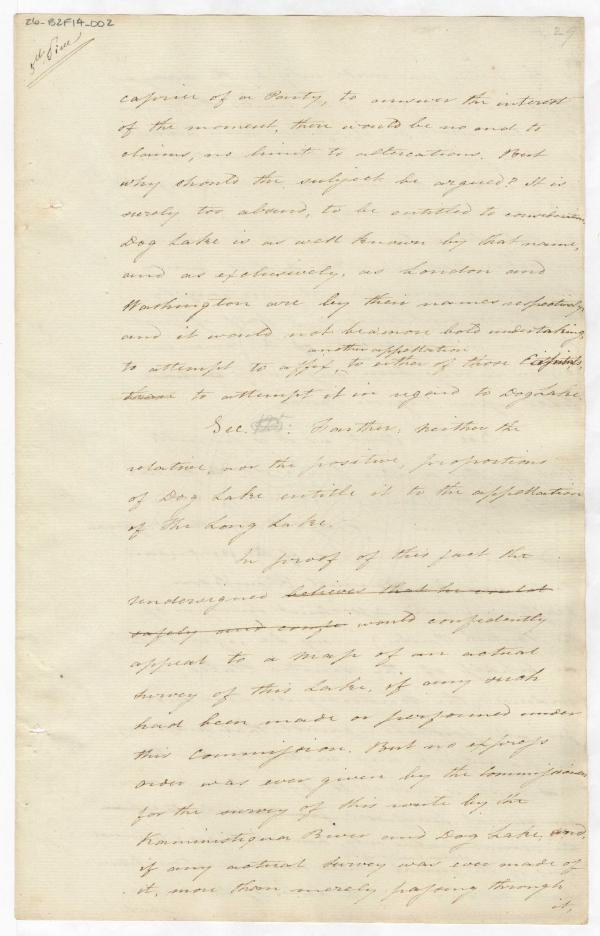 26-B2F14-002
29
caprice of a Party, to answer the interest
of the moment, there would be no end to
claims, no limit to altercations. But
why should the subject be argued? It is
surely too absurd, to be entitled to consideration.
Dog Lake is as well known by that name,
and as exclusively, as London and
Washington are by their names respectively,
and it would not be a more bold undertaking,
another appellation
to attempt to affix, to either of those Capitals,
than to attempt it in regard to Dog Lake.
Sec. : Farther, neither the
relative, nor the positive, proportions
of Dog Lake entitle it to the appellation
of the Long Lake.
In proof of this fact the
undersigned believes that he could
safely and confi would confidently
appeal to a map of an actual
survey of this Lake, if any such
had been made or performed under
this Commission. But no express
order was ever given by the Commissioners
for the survey of this route by the
Kaministiqua River and Dog Lake, and,
if any actual survey was ever made of
it, more than merely passing through
it,